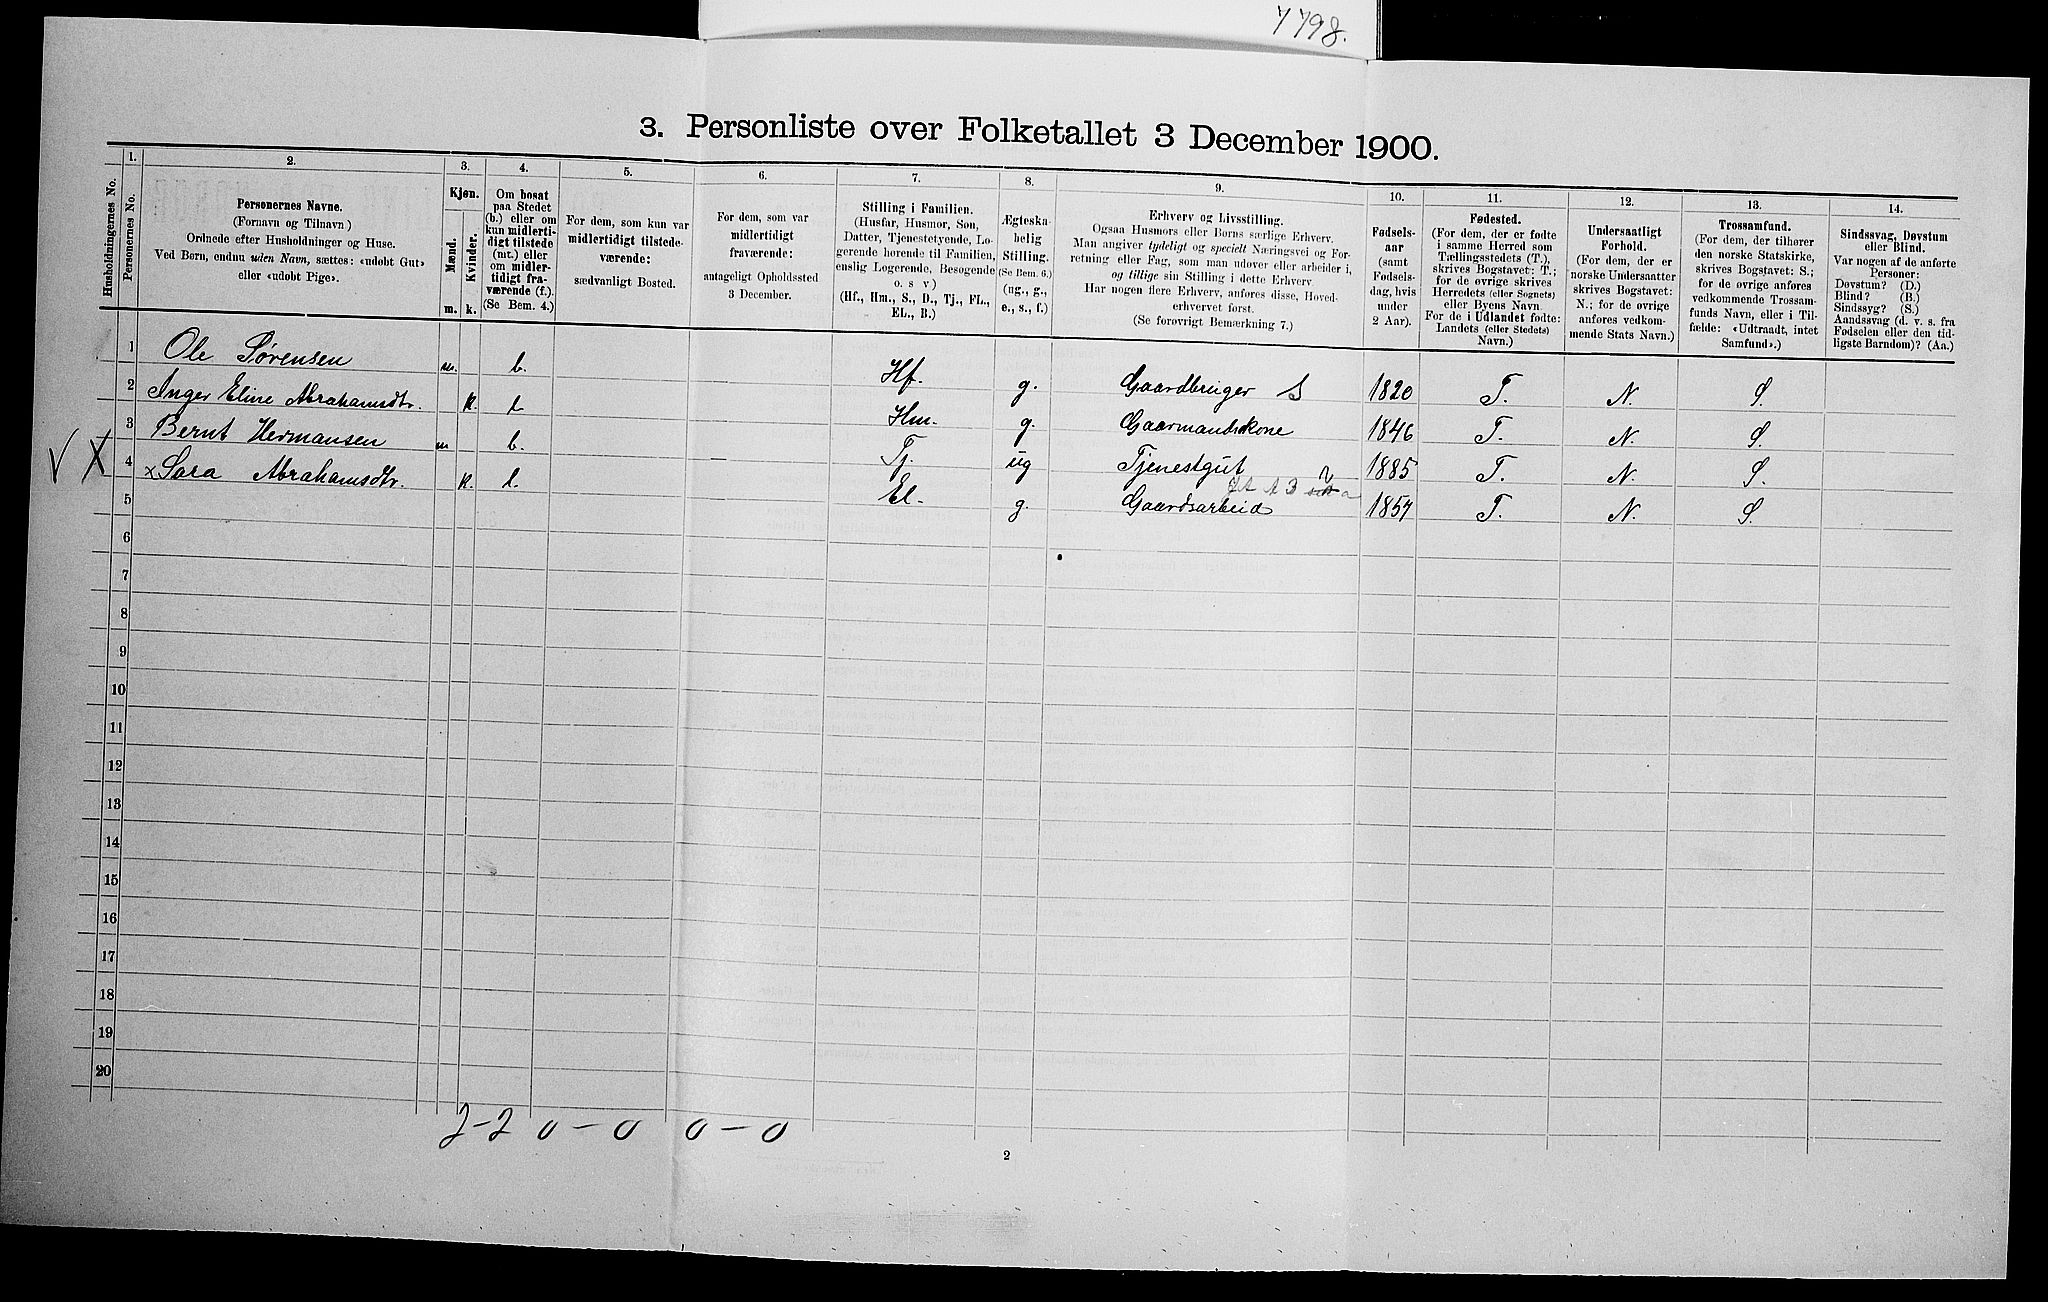 7798.
3. Personliste over Folketallet 3 December 1900.
Husholdningernes No.
1.
Personernes No.
2.
Personernes Navne.
(Fornavn og Tilnavn)
Ordnede efter Husholdninger og Huse.
Ved Børn, endnu uden Navn, sættes: «udøbt Gut»
eller «udøbt Pige».
3.
Kjøn.
Mænd.
Kvinder.
m. k.
4.
Om bosat
paa Stedet
(b.) eller om
kun midlerti-
digt tilstede
(mt.) eller
om midler-
tidigt fra-
værende (f.).
(Se Bem. 4.)
5.
For dem, som kun var
midlertidigt tilstede-
værende:
sædvanligt Bosted.
6.
For dem, som var
midlertidigt
fraværende:
antageligt Opholdssted
3 December.
7.
Stilling i Familien.
(Husfar, Husmor, Søn,
Datter, Tjenestetyende, Lo-
gerende hørende til Familien,
enslig Logerende, Besøgende
o. s v)
(Hf., Hm., S., D., Tj., FL.,
EL., B.)
8.
Ægteska-
belig
Stilling.
(Se Bem. 6.)
(ug., g.,
e., s., f.)
9.
Erhverv og Livsstilling.
Ogsaa Husmors eller Børns særlige Erhverv.
Man angiver tydeligt og specielt Næringsvei og For-
retning eller Fag, som man udøver eller arbeider i,
og tillige sin Stilling i dette Erhverv.
Har nogen flere Erhverv, anføres disse, Hoved-
erhvervet først.
(Se forøvrigt Bemærkning 7.)
10.
Fødsels-
aar
(samt
Fødsels-
dag, hvis
under
2 Aar).
11.
Fødested.
(For dem, der er fødte
i samme Herred som
Tællingsstedets (T.),
skrives Bogstavet: T.;
for de øvrige skrives
Herredets (eller Sognets)
eller Byens Navn
For de i Udlandet fødte:
Landets (eller Stedets)
Navn.)
12.
Undersaatligt
Forhold.
(For dem, der er
norske Undersaatter
skrives Bogstavet:
N.; for de øvrige
anføres vedkom-
mende Stats Navn.)
13.
Trossamfund.
(For dem, der tilhører
den norske Statskirke,
skrives Bogstavet: S.;
for de øvrige anføres
vedkommende Trossam-
funds Navn, eller i Til-
fælde: «Udtraadt, intet
Samfund».)
14.
Sindssvag, Døvstum
eller Blind.
Var nogen af de anførte
Personer:
Døvstum? (D.)
Blind? (B.)
Sindssyg? (S.)
Aandssvag (d. v. s. fra
Fødselen eller den tid-
ligste Barndom)? (Aa.)
1 Ole Sørensen m. b. Hf. g. Gaardbruger S 1820 T. N. S.
2 Inger Eline Abrahamsdtr. k. b Hm. g. Gaarmandskone 1846 T. N. S.
3 Bernt Hermansen m b. Tj. ug Tjenestgut 1885 T. N. S.
V X 4 x Sara Abrahamsdtr. k. b. El. g. Gaardsarbeid 1854 T. N. S.
5
6
7
8
9
10
11
12
13
14
15
16
17
18
19
20
2-2 0-0 0-0
2